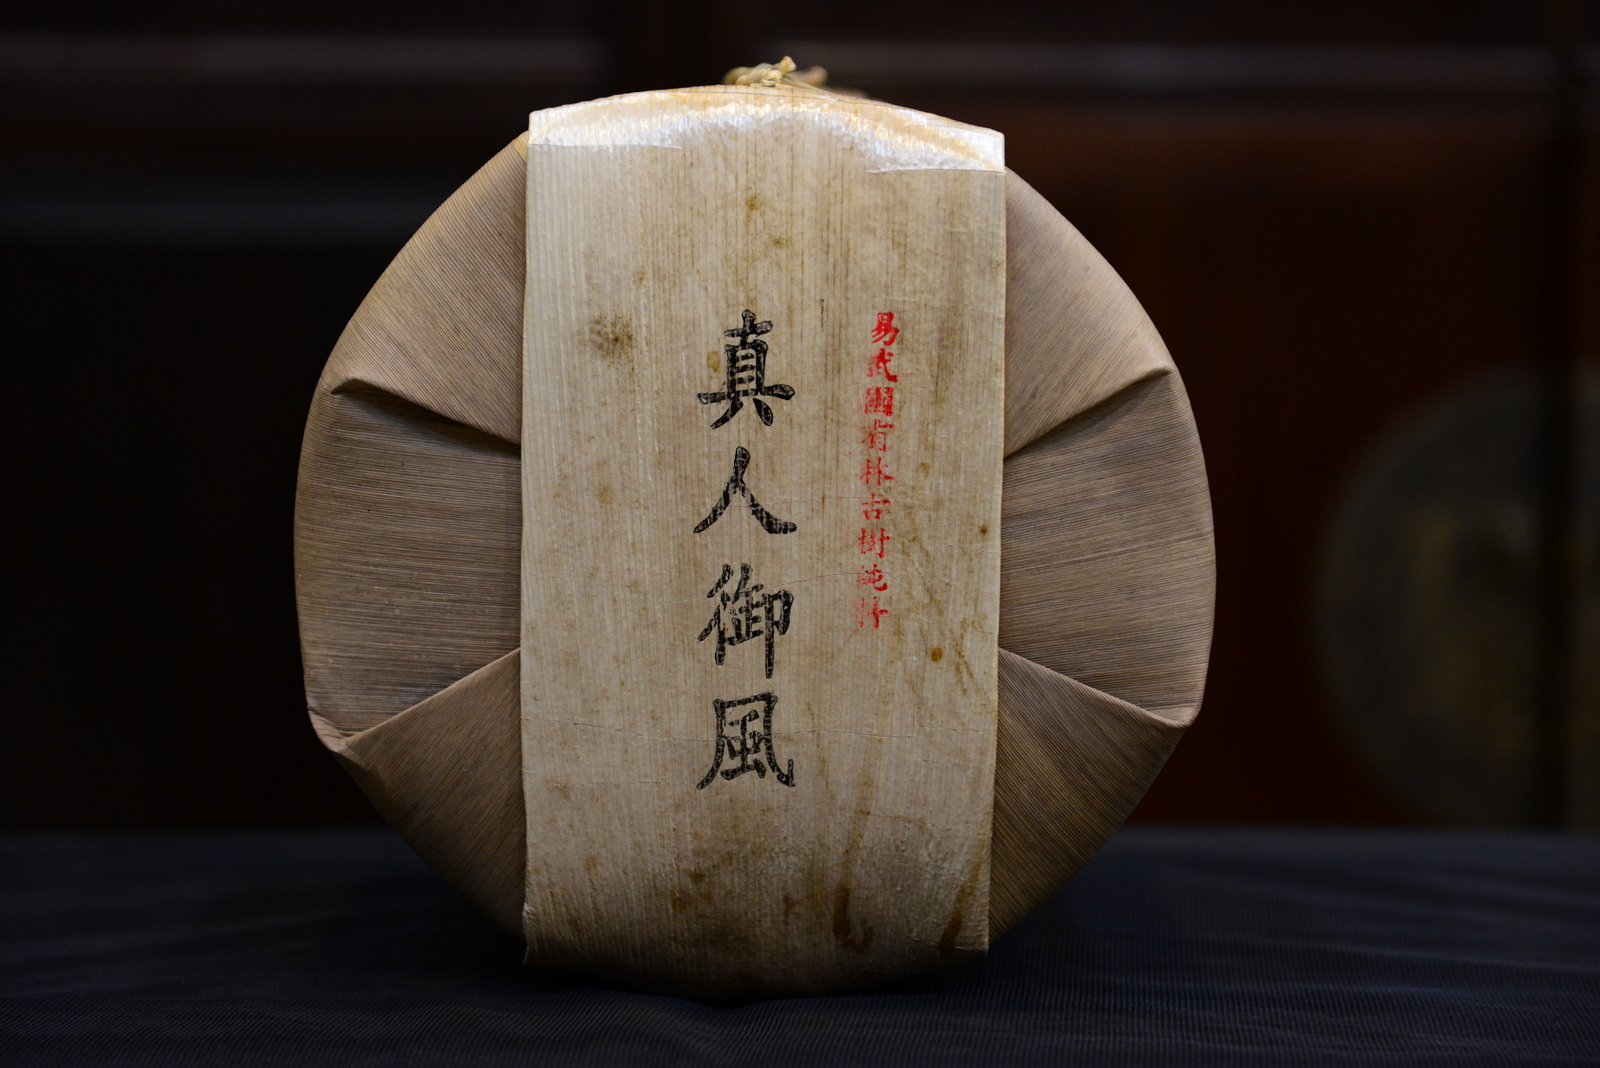 易武國有林古樹純料
真人御風